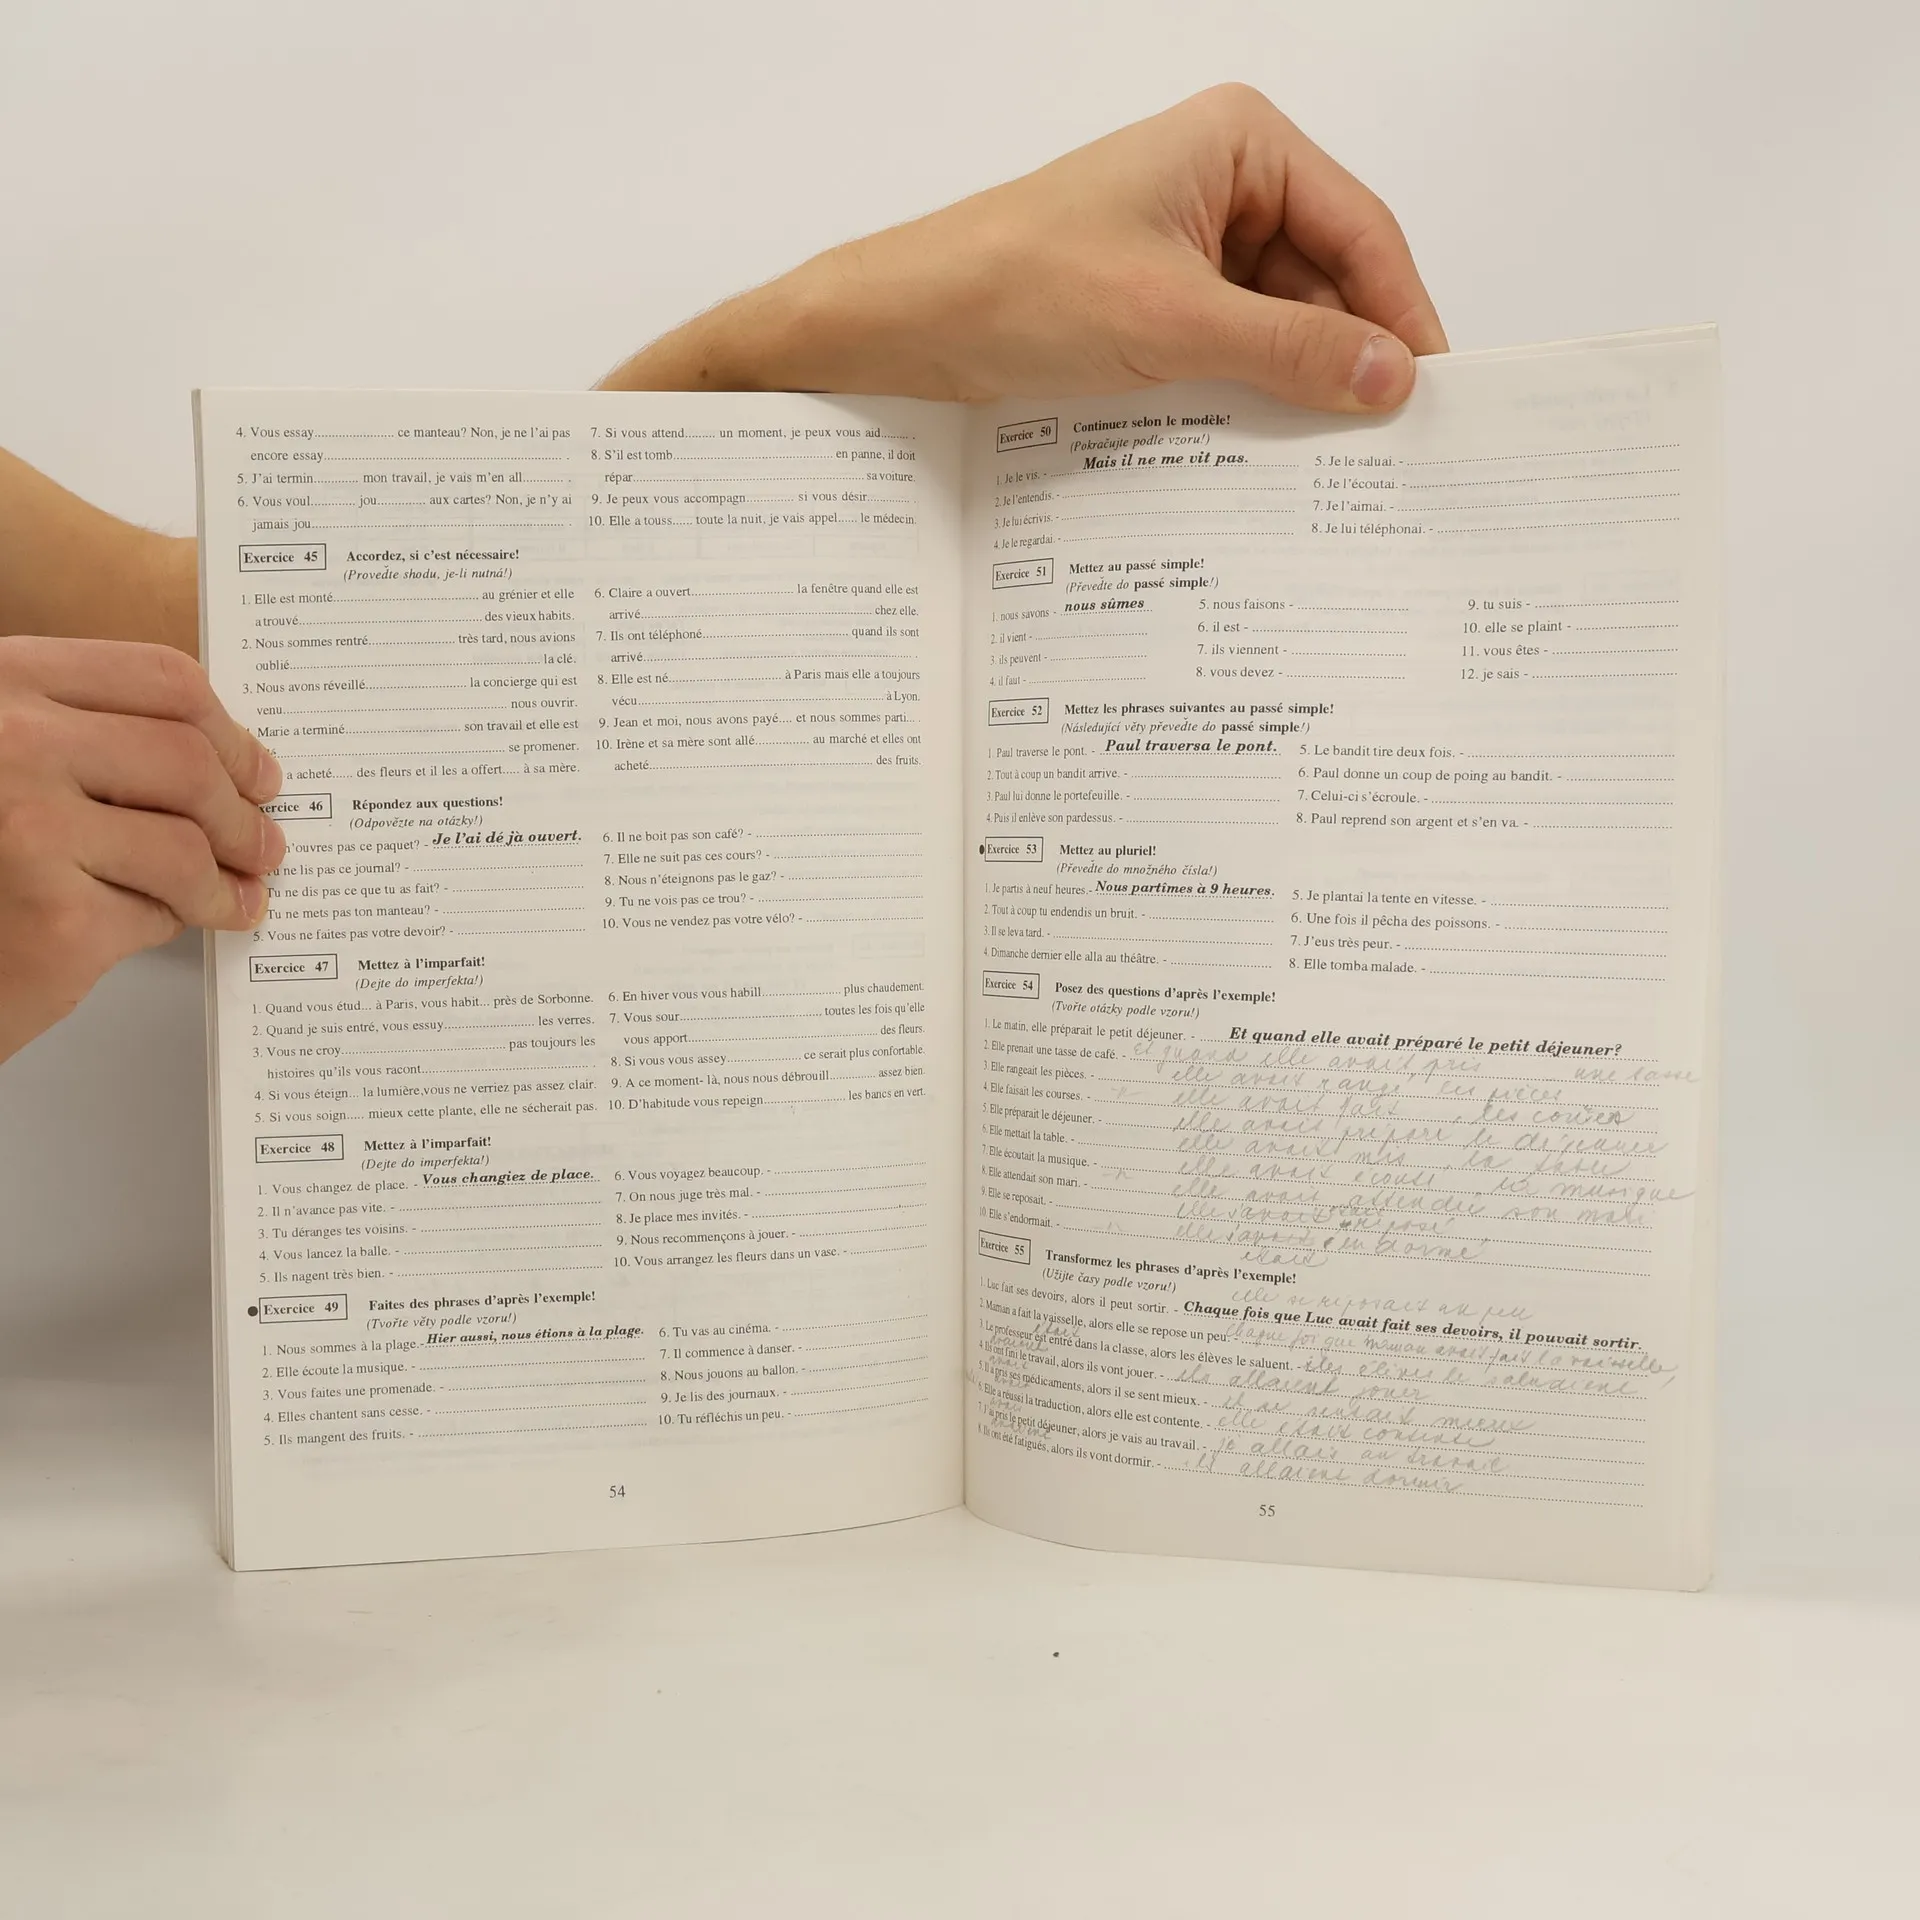 4. Vous essay........................ ce manteau? Non, je ne l'ai pas
encore essay.......................................................................... .
5. J'ai termin............. mon travail, je vais m'en all............ .
6. Vous voul............. jou............... aux cartes? Non, je n'y ai
jamais jou............................................................................. .
7. Si vous attend......... un moment, je peux vous aid......... .
8. S'il est tomb................................................ en panne, il doit
répar...................................................................... sa voiture.
9. Je peux vous accompagn.............. si vous désir............. .
10. Elle a touss...... toute la nuit, je vais appel...... le médecin.
Exercice 45 Accordez, si c'est nécessaire!
(Proveďte shodu, je-li nutná!)
1. Elle est monté............................................ au grénier et elle
a trouvé....................................................... des vieux habits.
2. Nous sommes rentré.......................... très tard, nous avions
oublié............................................................................ la clé.
3. Nous avons réveillé.............................. la concierge qui est
venu........................................................................... nous ouvrir.
Marie a terminé................................... son travail et elle est
.................................................................... se promener.
a acheté...... des fleurs et il les a offert..... à sa mère.
6. Claire a ouvert............................... la fenêtre quand elle est
arrivé...................................................................... chez elle.
7. Ils ont téléphoné............................................ quand ils sont
arrivé................................................................................. .
8. Elle est né.................................. à Paris mais elle a toujours
vécu........................................................................... à Lyon.
9. Jean et moi, nous avons payé.... et nous sommes parti... .
10. Irène et sa mère sont allé................ au marché et elles ont
acheté................................................................... des fruits.
Exercice 46 Répondez aux questions!
(Odpovězte na otázky!)
n'ouvres pas ce paquet? - Je l'ai déjà ouvert.
ne lis pas ce journal? - ....................................................
Tu ne dis pas ce que tu as fait? - ........................................
Tu ne mets pas ton manteau? - ...........................................
5. Vous ne faites pas votre devoir? - .......................................
6. Il ne boit pas son café? - .................................................
7. Elle ne suit pas ces cours? - .............................................
8. Nous n'éteignons pas le gaz? - ..........................................
9. Tu ne vois pas ce trou? - .................................................
10. Vous ne vendez pas votre vélo? - ......................................
Exercice 47 Mettez à l'imparfait!
(Dejte do imperfekta!)
1. Quand vous étud... à Paris, vous habit... près de Sorbonne.
2. Quand je suis entré, vous essuy........................... les verres.
3. Vous ne croy................................................. pas toujours les
histoires qu'ils vous racont................................................ .
4. Si vous éteign... la lumière,vous ne verriez pas assez clair.
5. Si vous soign..... mieux cette plante, elle ne sécherait pas.
6. En hiver vous vous habill........................ plus chaudement.
7. Vous sour.......................................... toutes les fois qu'elle
vous apport.......................................................... des fleurs.
8. Si vous vous assey...................... ce serait plus confortable.
9. A ce moment- là, nous nous débrouill.............. assez bien.
10. D'habitude vous repeign......................... les bancs en vert.
Exercice 48 Mettez à l'imparfait!
(Dejte do imperfekta!)
1. Vous changez de place. - Vous changiez de place.
2. Il n'avance pas vite. - .......................................................
3. Tu déranges tes voisins. - .................................................
4. Vous lancez la balle. - ......................................................
5. Ils nagent très bien. - .......................................................
6. Vous voyagez beaucoup. - ................................................
7. On nous juge très mal. - ...................................................
8. Je place mes invités. - ......................................................
9. Nous recommençons à jouer. - .........................................
10. Vous arrangez les fleurs dans un vase. - ...........................
Exercice 49 Faites des phrases d'après l'exemple!
(Tvořte věty podle vzoru!)
1. Nous sommes à la plage.- Hier aussi, nous étions à la plage.
2. Elle écoute la musique. - ...................................................
3. Vous faites une promenade. - ............................................
4. Elles chantent sans cesse. - ...............................................
5. Ils mangent des fruits. - ....................................................
6. Tu vas au cinéma. - ..........................................................
7. Il commence à danser. - ...................................................
8. Nous jouons au ballon. - ...................................................
9. Je lis des journaux. - .........................................................
10. Tu réfléchis un peu. - ......................................................
54
Exercice 50 Continuez selon le modèle!
(Pokračujte podle vzoru!)
1. Je le vis. - Mais il ne me vit pas.
2. Je l'entendis. - .................................................................
3. Je lui écrivis. - .................................................................
4. Je le regardai. - ................................................................
5. Je le saluai. - ...................................................................
6. Je l'écoutai. - ...................................................................
7. Je l'aimai. - .....................................................................
8. Je lui téléphonai. - ............................................................
Exercice 51 Mettez au passé simple!
(Převeďte do passé simple!)
1. nous savons - nous sûmes
2. il vient - ...............................
3. ils peuvent - ..........................
4. il faut - .................................
5. nous faisons - ..............................
6. il est - .........................................
7. ils viennent - ...............................
8. vous devez - ................................
9. tu suis - .......................................
10. elle se plaint - ............................
11. vous êtes - .................................
12. je sais - ......................................
Exercice 52 Mettez les phrases suivantes au passé simple!
(Následující věty převeďte do passé simple!)
1. Paul traverse le pont. - Paul traversa le pont.
2. Tout à coup un bandit arrive. - ..........................................
3. Paul lui donne le portefeuille. - .........................................
4. Puis il enlève son pardessus. - ..........................................
5. Le bandit tire deux fois. - .................................................
6. Paul donne un coup de poing au bandit. - .........................
7. Celui-ci s'écroule. - ..........................................................
8. Paul reprend son argent et s'en va. - .................................
Exercice 53 Mettez au pluriel!
(Převeďte do množného čísla!)
1. Je partis à neuf heures.- Nous partîmes à 9 heures.
2. Tout à coup tu endendis un bruit. - ...................................
3. Il se leva tard. - ...............................................................
4. Dimanche dernier elle alla au théâtre. - ............................
5. Je plantai la tente en vitesse. - ..........................................
6. Une fois il pêcha des poissons. - .......................................
7. J'eus très peur. - ..............................................................
8. Elle tomba malade. - ........................................................
Exercice 54 Posez des questions d'après l'exemple!
(Tvořte otázky podle vzoru!)
1. Le matin, elle préparait le petit déjeuner. - ...... Et quand elle avait préparé le petit déjeuner?
2. Elle prenait une tasse de café. - Et quand elle avait pris une tasse
3. Elle rangeait les pièces. - elle avait rangé les pièces
4. Elle faisait les courses. - elle avait fait les courses
5. Elle préparait le déjeuner. - elle avait préparé le déjeuner
6. Elle mettait la table. - elle avait mis la table
7. Elle écoutait la musique. - elle avait écouté la musique
8. Elle attendait son mari. - elle avait attendu son mari
9. Elle se reposait. - elle s'avait reposé
10. Elle s'endormait. - elle s'avait endormé
était
Exercice 55 Transformez les phrases d'après l'exemple!
(Užijte časy podle vzoru!)
elle se reposait un peu
1. Luc fait ses devoirs, alors il peut sortir. - Chaque fois que Luc avait fait ses devoirs, il pouvait sortir.
2. Maman a fait la vaisselle, alors elle se repose un peu. - Chaque foi que maman avait fait la vaisselle,
était
3. Le professeur est entré dans la classe, alors les élèves le saluent. - les élèves le saluaient
avaient
4. Ils ont fini le travail, alors ils vont jouer. - ils allaient jouer
avait
5. Il a pris ses médicaments, alors il se sent mieux. - il se sentait mieux
avait
6. Elle a réussi la traduction, alors elle est contente. - elle était contente
avais
7. J'ai pris le petit déjeuner, alors je vais au travail. - je allais au travail
avaient
8. Ils ont été fatigués, alors ils vont dormir. - ils allaient dormir
55